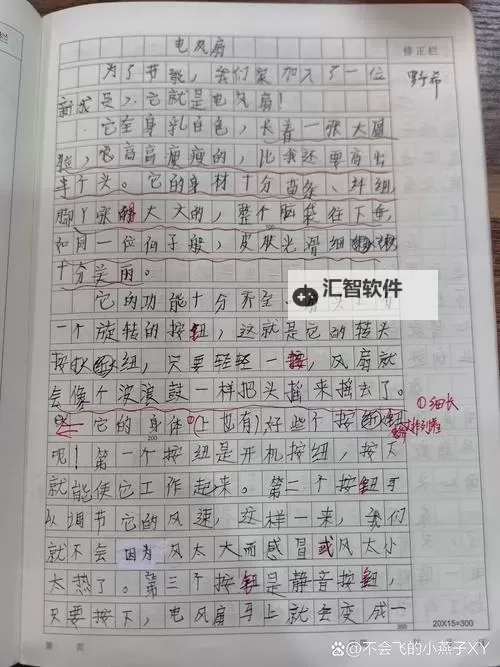 电风扇
修正栏
为了节能，我们家加入了一位
野希
新成员，它就是电风扇！
它全身乳白色，长着一张大圆
脸，它高高瘦瘦的，比我还要高出
半个头。它的身材十分苗条、纤细
脚丫张的大大的，整个脑袋往下垂，
如同一位 子般，皮肤光滑细嫩
十分美丽。
它的功能十分齐全，
汇智软件
一个旋转的按钮，这就是它的转头
按钮，只要轻轻一按，风扇就
会像个波浪鼓一样把头摇来摇去了。
①细长
它的身体(上也有)好些个按钮
排列着
200
呢！第一个按钮是开机按钮，按下
就能使它工作起来。第二个按钮可
以调节它的风速，这样一来，我们
就不会因为风太大而感冒或风太小
太热了。第三个按钮是静音按钮，
只要按下，电风扇马上就会变成一
300
20X15=300
第 页
@不会飞的小燕子XY